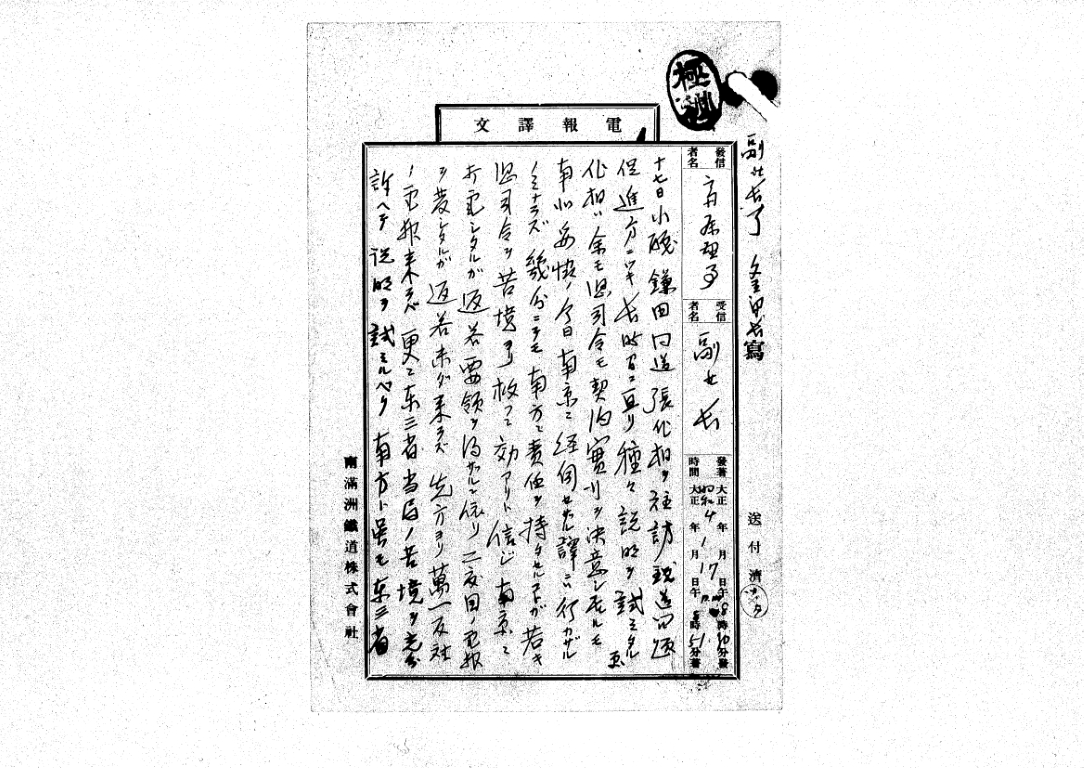 極秘
電報譯文
副社長了
寫
發信者名
斎藤理事
受信者名
副社長
發著時間
大正 昭和4年1月17日午後8時10分發
大正 年 月 日午 8時51分著
送付濟
十七日小磯鎌田同道張作相ヲ往訪鉄道問題
促進方ニツキ長時間ニ亘リ種々説明ヲ試ミタル
作相ハ余モ思司令モ契約實行ヲ決意シ居ルモ
南北妥協ノ今日南京ニ経伺セザル譯ニ行カザル
ノミナラズ幾分ニテモ南方ニ責任ヲ持タセルコトガ若キ
思司令ヲ苦境ヨリ救フニ効アリト信ジ南京ニ
打電シタルガ返答要領ヲ得ザルニ依リ二度目ノ電報
ヲ發シタルガ返答未ダ来ラズ先方ヨリ萬一反対
ノ電報来ラバ更ニ東三省当局ノ苦境ヲ充分
訴ヘテ説明ヲ試ミルベク南方ト雖モ東三省
南滿洲鐵道株式會社